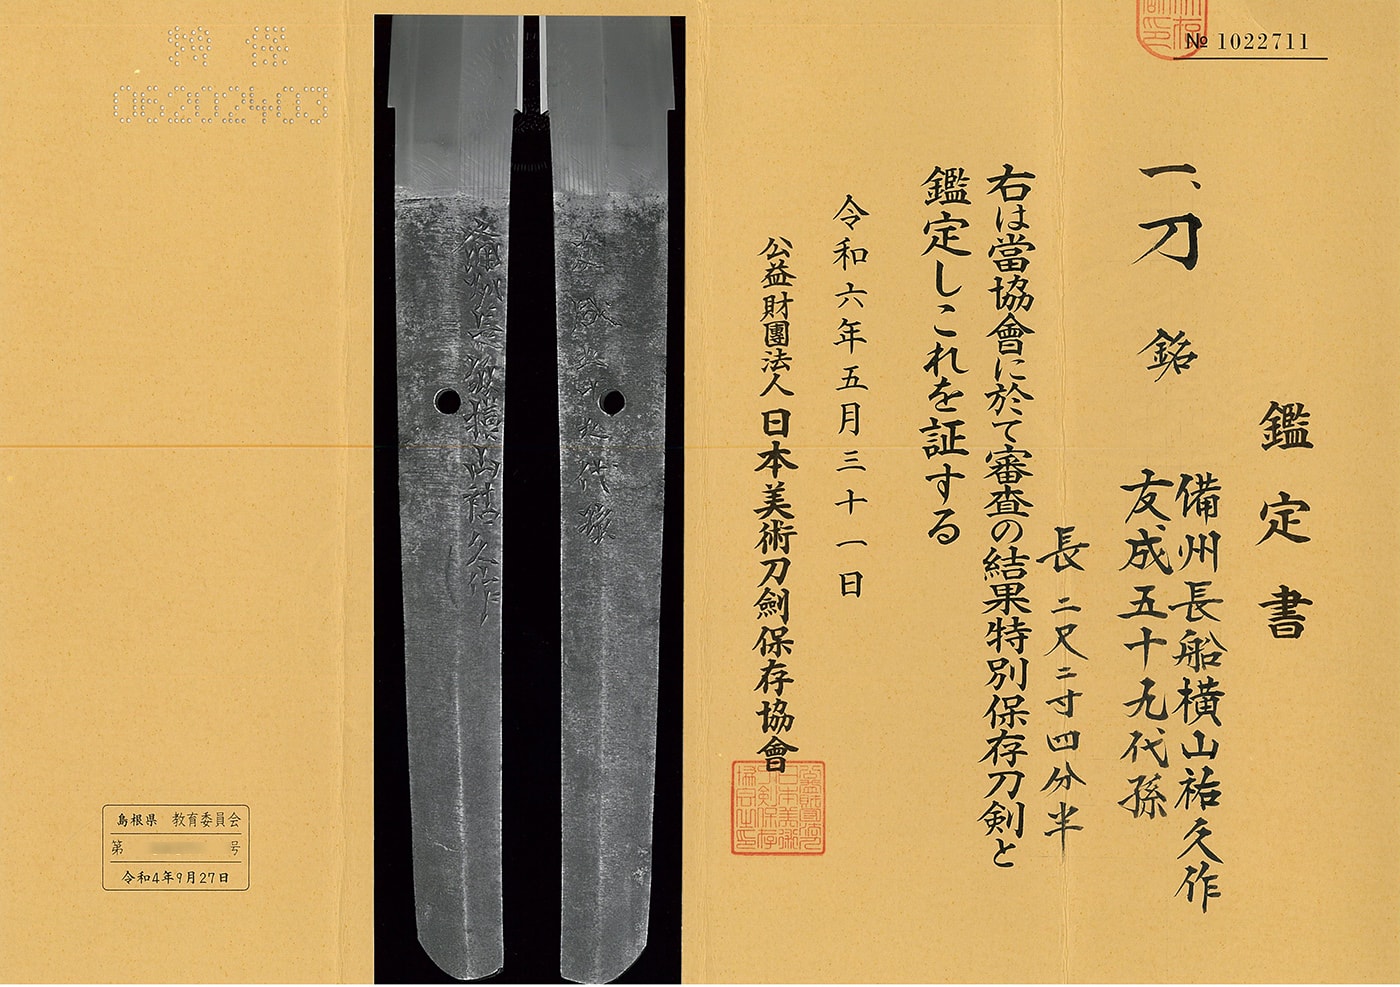 № 1022711
鑑定書
一、刀 銘 備州長船横山祐久作
友成五十九代孫
長 二尺二寸四分半
右は當協會に於て審査の結果特別保存刀剣と
鑑定しこれを証する
令和六年五月三十一日
公益財團法人 日本美術刀劍保存協會
備州長船横山祐久作
友成五十九代孫
特 保
06202403
島根県 教育委員会
第 号
令和4年9月27日